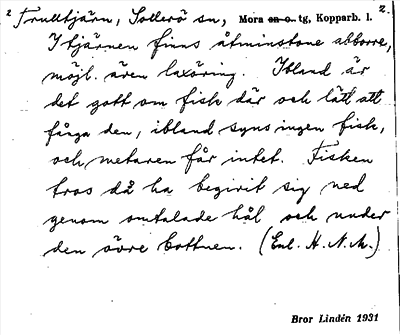 2 Trulltjärn, Sollerö sn, Mora en o. tg, Kopparb. l. 2.
I tjärnen finns åtminstone abborre,
möjl. även laxöring. Ibland är
det gott om fisk där och lätt att
fånga den, ibland syns ingen fisk,
och metaren får intet. Fisken
tros då ha begivit sig ned
genom omtalade hål och under
den övre bottnen. (Enl. H. N. M.)
Bror Lindén 1931